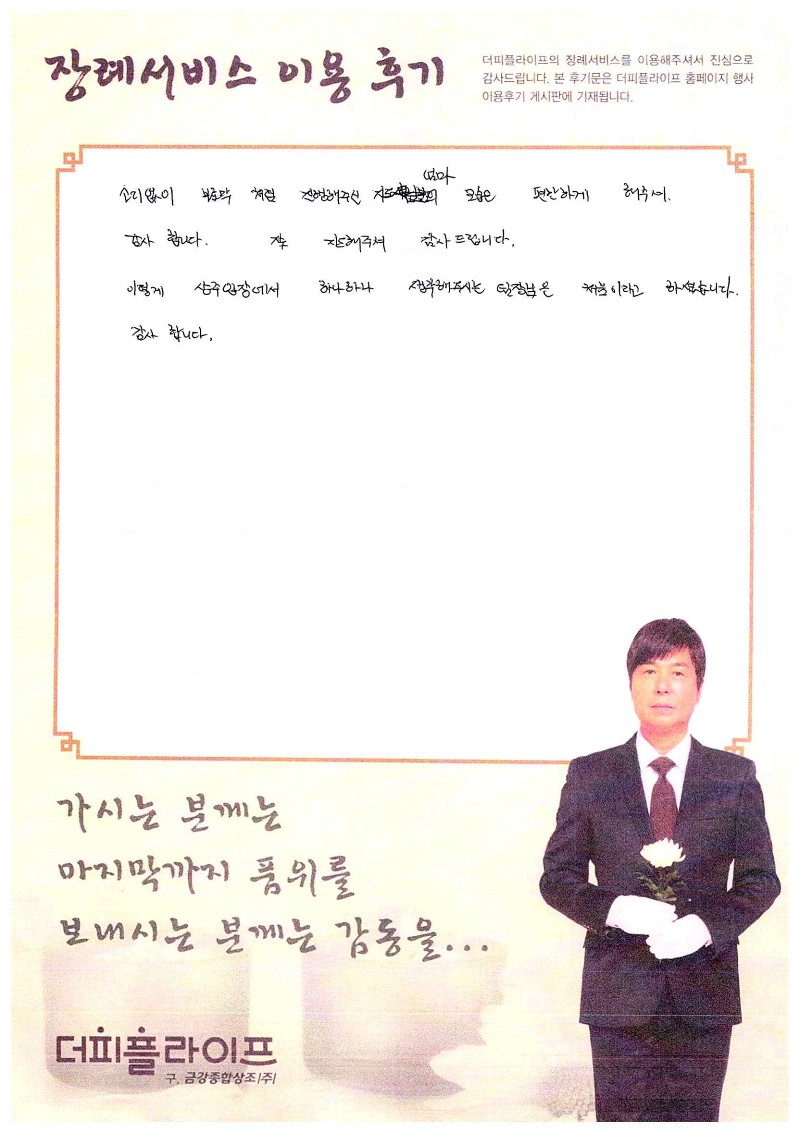 장례서비스 이용 후기
더피플라이프의 장례서비스를 이용해주셔서 진심으로
감사드립니다. 본 후기문은 더피플라이프 홈페이지 행사
이용후기 게시판에 기재됩니다.
엄마
소리없이 처럼 진행해주신 모습은 편안하게 해주셔.
감사 합니다. 잘 지도해주셔 감사드립니다.
이렇게 상주입장에서 하나하나 생각해주시는 은 처음이라고 하셨습니다.
감사 합니다.
가시는 분께는
마지막까지 품위를
보내시는 분께는 감동을...
더피플라이프
구. 금강종합상조(주)